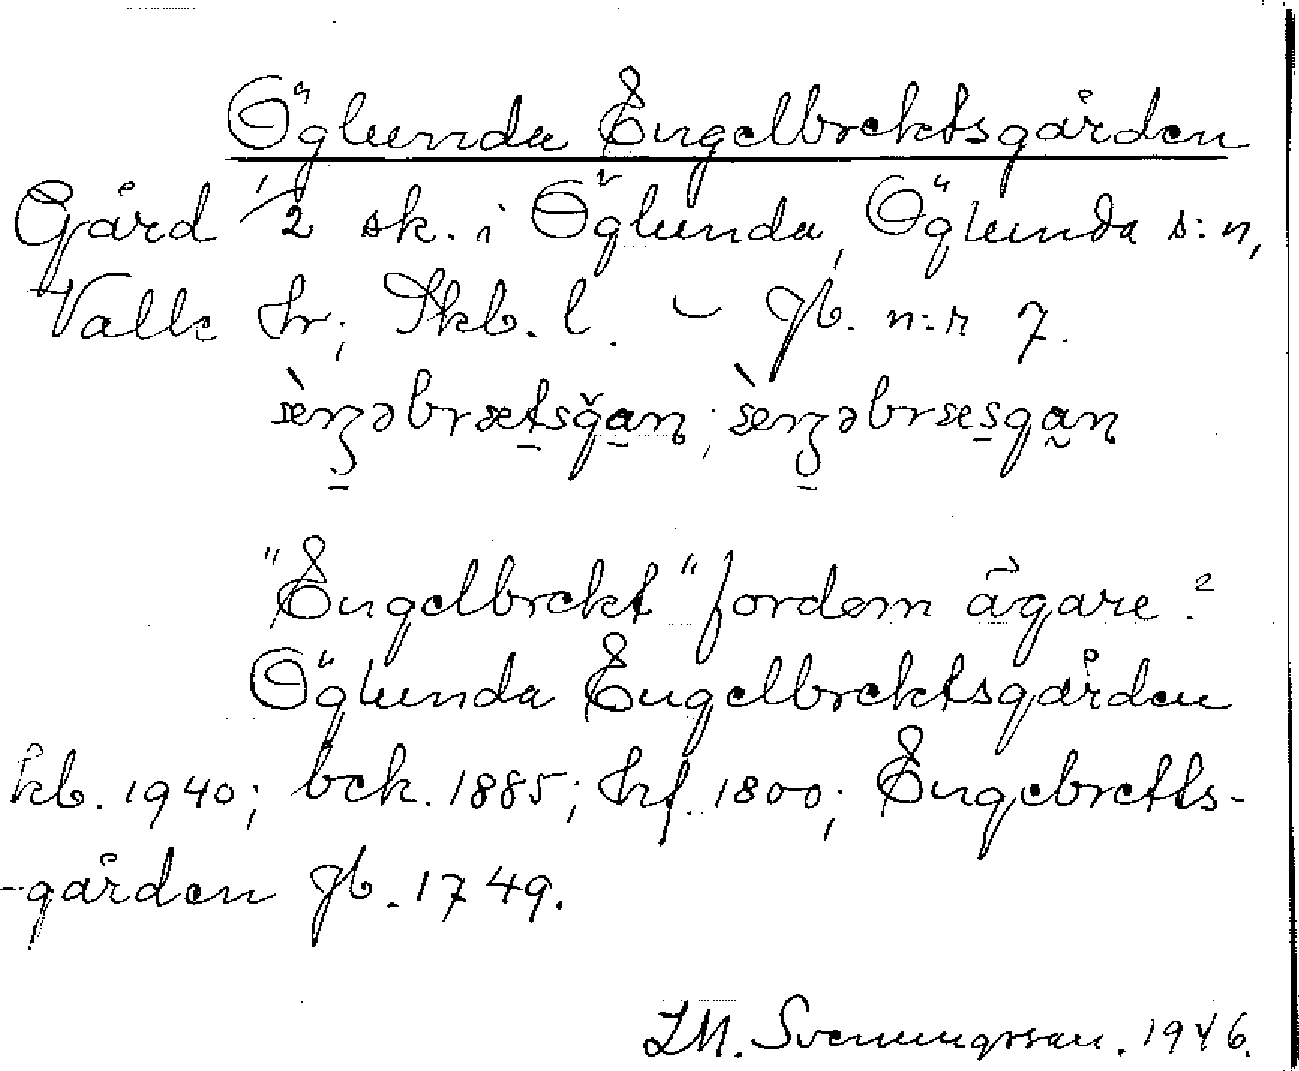 Öglunda Engelbrektsgården
Gård 1/2 sk. i Öglunda, Öglunda s:n,
Valle hr; Skb. l. – Jb. n:r 7.
"Engelbrekt" fordom ägare?
Öglunda Engelbrektsgården
kb. 1940; bek. 1885; hf. 1800; Engebretts-
-gården Jb. 1749.
Svenungsson. 1946.